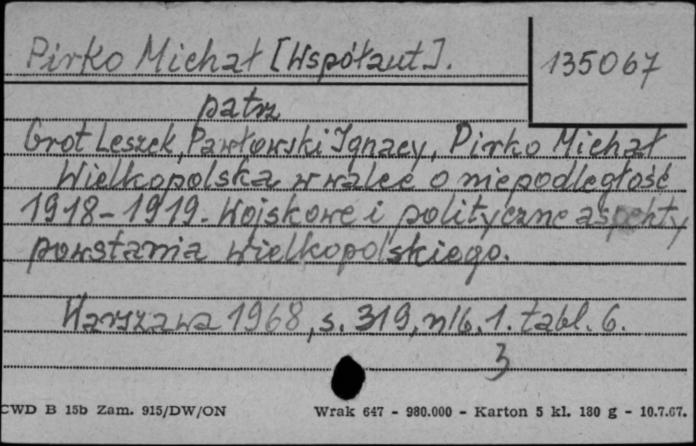 Pirko Michał [Współaut].
135067
patrz
Grot Leszek, Pawłowski Ignacy, Pirko Michał
Wielkopolska w walce o niepodległość
1918-1919. Wojskowe i polityczne aspekty
powstania wielkopolskiego.
Warszawa 1968, s. 319, nlb. 1. tabl. 6.
3
CWD B 15b Zam. 915/DW/ON
Wrak 647 - 980.000 - Karton 5 kl. 180 g - 10.7.67.